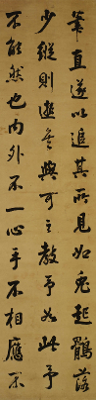 筆直遂以追其所見如兔起鶻落
少縱則逝矣與可之教予如此予
不能然也內外不一心手不相應不